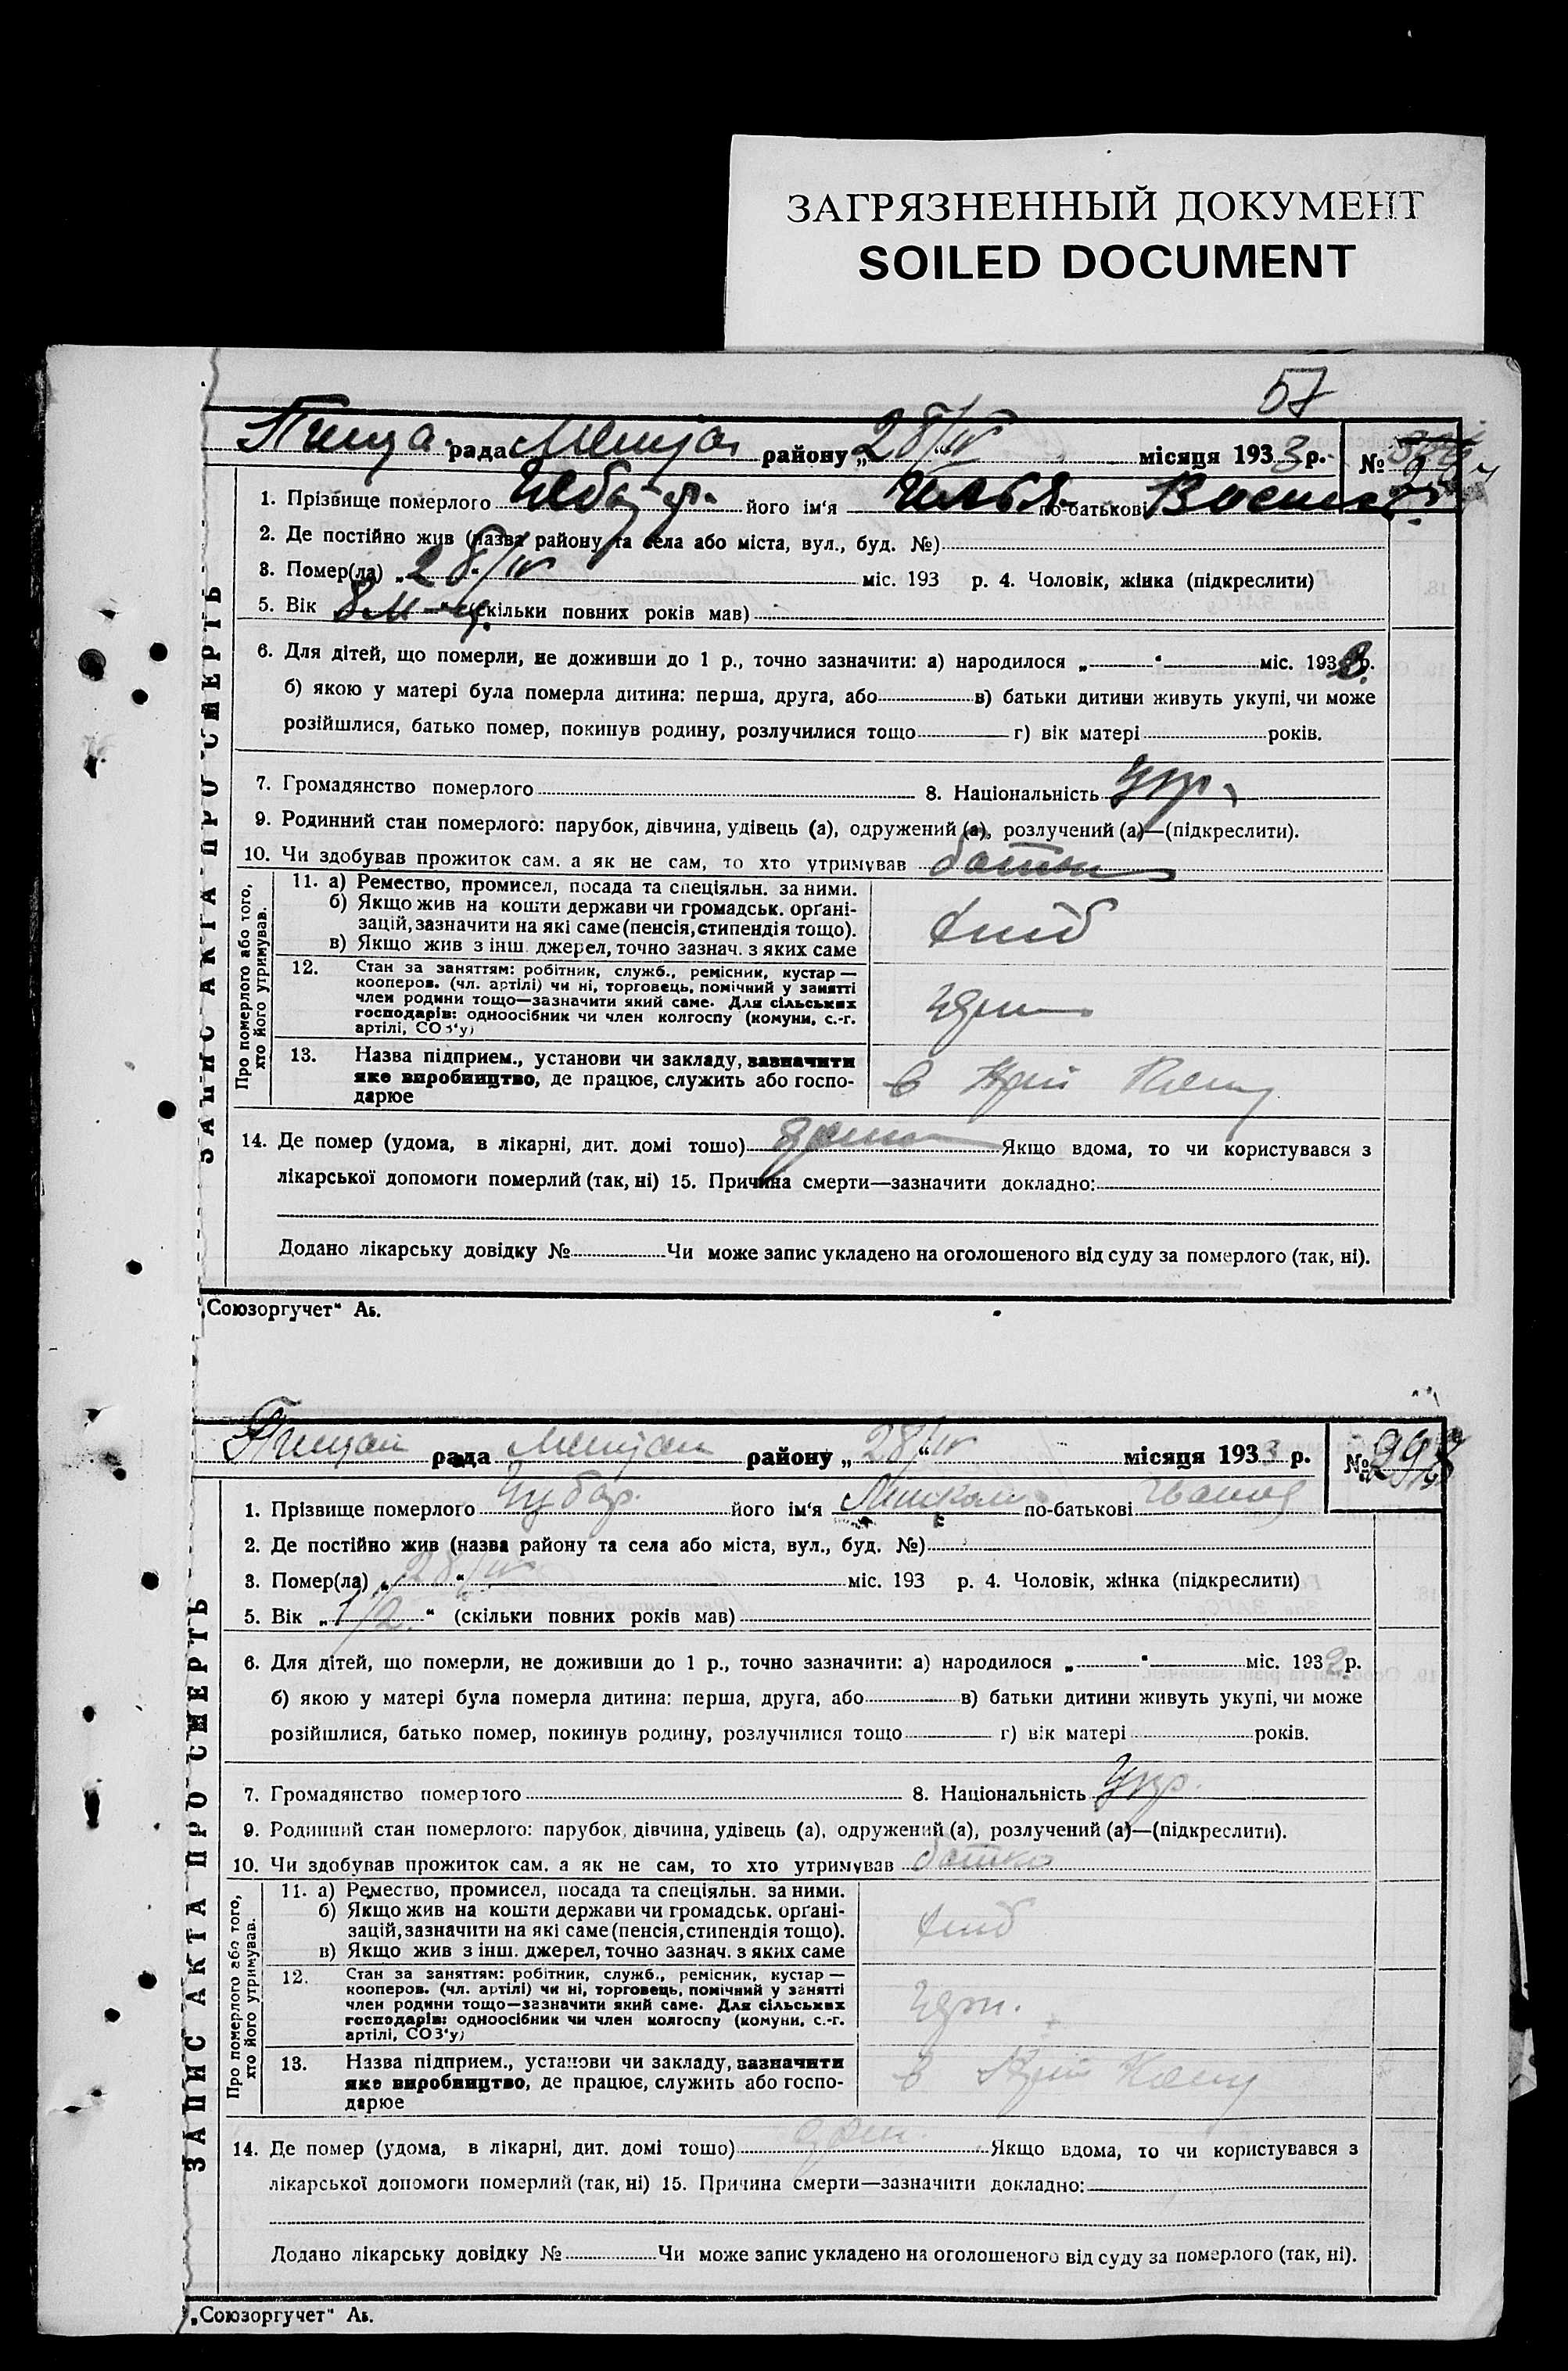 ЗАГРЯЗНЕННЫЙ ДОКУМЕНТ
SOILED DOCUMENT
57
рада району „28/IV“ місяця 1933 р. №
ЗАПИС АКТА ПРО СМЕРТЬ
1. Прізвище померлого його ім'я по-батькові
2. Де постійно жив (назва району та села або міста, вул., буд. №)
3. Помер(ла) „28/IV“ міс. 193 р. 4. Чоловік, жінка (підкреслити)
5. Вік 8 м-ц. (скільки повних років мав)
6. Для дітей, що померли, не доживши до 1 р., точно зазначити: а) народилося „ “ міс. 193 р.
б) якою у матері була померла дитина: перша, друга, або в) батьки дитини живуть укупі, чи може
розійшлися, батько помер, покинув родину, розлучилися тощо г) вік матері років.
7. Громадянство померлого 8. Національність Укр.
9. Родинний стан померлого: парубок, дівчина, удівець (а), одружений (а), розлучений (а)—(підкреслити).
10. Чи здобував прожиток сам. а як не сам, то хто утримував батьки
Про померлого або того, хто його утримував.
11. а) Ремество, промисел, посада та спеціяльн. за ними.
б) Якщо жив на кошти держави чи громадськ. орґані-
зацій, зазначити на які саме (пенсія, стипендія тощо).
в) Якщо жив з інш. джерел, точно зазнач. з яких саме
хліб
12. Стан за заняттям: робітник, служб., ремісник, кустар —
кооперов. (чл. артілі) чи ні, торговець, помічний у занятті
член родини тощо—зазначити який саме. Для сільських
господарів: одноосібник чи член колгоспу (комуни, с.-г.
артілі, СОЗ'у)
13. Назва підприєм., установи чи закладу, зазначити
яке виробництво, де працює, служить або госпо-
дарює
14. Де помер (удома, в лікарні, дит. домі тощо) Якщо вдома, то чи користувався з
лікарської допомоги померлий (так, ні) 15. Причина смерти—зазначити докладно:
Додано лікарську довідку № Чи може запис укладено на оголошеного від суду за померлого (так, ні).
„Союзоргучет“ Аб.
рада району „28/IV“ місяця 1933 р. №
ЗАПИС АКТА ПРО СМЕРТЬ
1. Прізвище померлого Чубар. його ім'я по-батькові
2. Де постійно жив (назва району та села або міста, вул., буд. №)
3. Помер(ла) „28/IV“ міс. 193 р. 4. Чоловік, жінка (підкреслити)
5. Вік „1/2“ (скільки повних років мав)
6. Для дітей, що померли, не доживши до 1 р., точно зазначити: а) народилося „ “ міс. 1932 р.
б) якою у матері була померла дитина: перша, друга, або в) батьки дитини живуть укупі, чи може
розійшлися, батько помер, покинув родину, розлучилися тощо г) вік матері років.
7. Громадянство померлого 8. Національність Укр.
9. Родинний стан померлого: парубок, дівчина, удівець (а), одружений (а), розлучений (а)—(підкреслити).
10. Чи здобував прожиток сам. а як не сам, то хто утримував батько
Про померлого або того, хто його утримував.
11. а) Ремество, промисел, посада та спеціяльн. за ними.
б) Якщо жив на кошти держави чи громадськ. орґані-
зацій, зазначити на які саме (пенсія, стипендія тощо).
в) Якщо жив з інш. джерел, точно зазнач. з яких саме
хліб
12. Стан за заняттям: робітник, служб., ремісник, кустар —
кооперов. (чл. артілі) чи ні, торговець, помічний у занятті
член родини тощо—зазначити який саме. Для сільських
господарів: одноосібник чи член колгоспу (комуни, с.-г.
артілі, СОЗ'у)
13. Назва підприєм., установи чи закладу, зазначити
яке виробництво, де працює, служить або госпо-
дарює
14. Де помер (удома, в лікарні, дит. домі тощо) Якщо вдома, то чи користувався з
лікарської допомоги померлий (так, ні) 15. Причина смерти—зазначити докладно:
Додано лікарську довідку № Чи може запис укладено на оголошеного від суду за померлого (так, ні).
„Союзоргучет“ Аб.